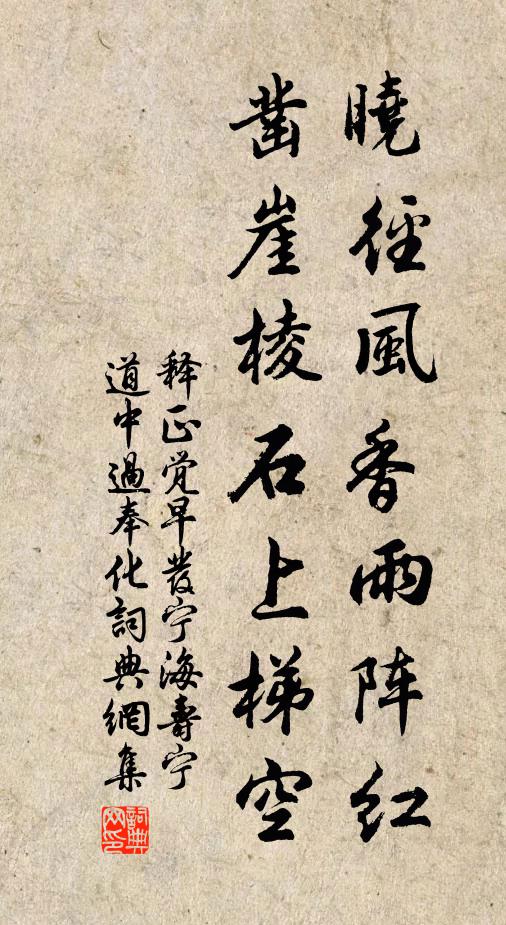 曉徑風香雨阵紅
凿崖棱石上梯空
释正觉早發宁海壽宁
道中過奉化詞典網集
詞典
网印